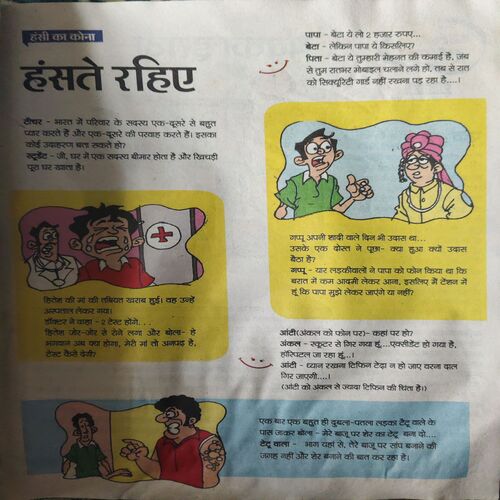 हंसी का कोना
हंसते रहिए
टीचर - भारत में परिवार के सदस्य एक-दूसरे से बहुत
प्यार करते हैं और एक-दूसरे की परवाह करते हैं। इसका
कोई उदाहरण बता सकते हो?
स्टूडेंट - जी, घर में एक सदस्य बीमार होता है और खिचड़ी
पूरा घर खाता है।
हितेश की मां की तबियत खराब हुई। वह उन्हें
अस्पताल लेकर गया।
डॉक्टर ने कहा - 2 टेस्ट होंगे...
हितेश जोर-जोर से रोने लगा और बोला- हे
भगवान अब क्या होगा, मेरी मां तो अनपढ़ है,
टेस्ट कैसे देगी?
पापा - बेटा ये लो 2 हजार रुपए...
बेटा - लेकिन पापा ये किसलिए?
पिता - बेटा ये तुम्हारी मेहनत की कमाई है, जब
से तुम रातभर मोबाइल चलाने लगे हो, तब से रात
को सिक्यूरिटी गार्ड नहीं रखना पड़ रहा है....।
गप्पू अपनी शादी वाले दिन भी उदास था...
उसके एक दोस्त ने पूछा- क्या हुआ क्यों उदास
बैठा है?
गप्पू - यार लड़कीवालों ने पापा को फोन किया था कि
बरात में कम आदमी लेकर आना, इसलिए मैं टेंशन में
हूं कि पापा मुझे लेकर जाएंगे या नहीं?
आंटी(अंकल को फोन पर)- कहां पर हो?
अंकल - स्कूटर से गिर गया हूं...एक्सीडेंट हो गया है,
हॉस्पिटल जा रहा हूं...।
आंटी - ध्यान रखना टिफिन टेढ़ा न हो जाए वरना दाल
गिर जाएगी....।
(आंटी को अंकल से ज्यादा टिफिन की चिंता है।)
एक बार एक बहुत ही दुबला-पतला लड़का टैटू वाले के
पास जाकर बोला - मेरे बाजू पर शेर का टैटू बना दो....
टैटू वाला - भाग यहां से, तेरे बाजू पर सांप बनाने की
जगह नहीं और शेर बनाने की बात कर रहा है।